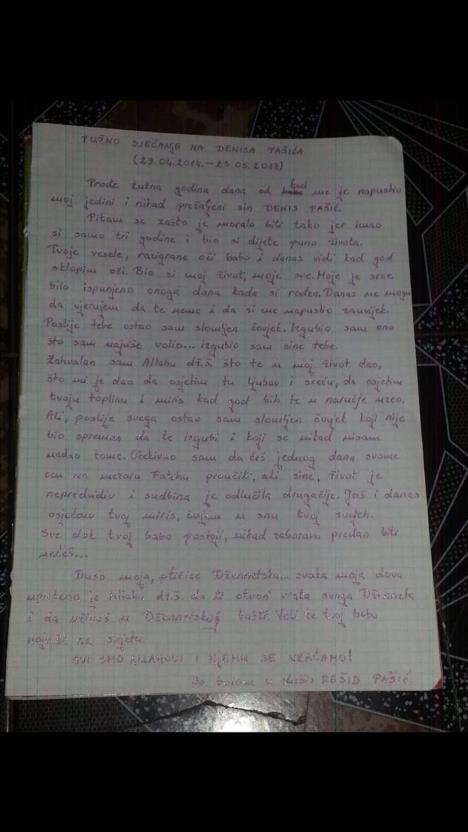 TUŽNO SJEĆANJE NA DENISA PAŠIĆA
(29.04.2014.-23.05.2017)
Prođe tužna godina dana od kad me je napustio
moj jedini i nikad prežaljeni sin DENIS PAŠIĆ.
Pitam se zašto je moralo biti tako jer imao
si samo tri godine i bio si dijete puno života.
Tvoje vesele, razigrane oči babo i danas vidi kad god
sklopim oči. Bio si moj život, moje sve. Moje je srce
bilo ispunjeno onoga dana kada si rođen. Danas ne mogu
da vjerujem da te nema i da si me napustio zauvijek.
Poslije tebe ostao sam slomljen čovjek. Izgubio sam ono
što sam najviše volio... izgubio sam sine tebe.
Zahvalan sam Allahu dž.š. što te u moj život dao,
što mi je dao da osjetim tu ljubav i sreću, da osjetim
tvoju toplinu i miris kad god bih te u naručje uzeo.
Ali, poslije svega ostao sam slomljen čovjek koji nije
bio spreman da te izgubi i koji se nikad nisam
nadao tome. Očekivao sam da ćeš jednog dana svome
ocu na mezaru Fatihu proučiti, ali sine, život je
nepredvidiv i sudbina je odlučila drugačije. Još i danas
osjećam tvoj miris, čujem u snu tvoj smijeh.
Sve dok tvoj babo postoji, nikad zaboravu predan biti
nećeš...
Dušo moja, ptičice Džennetska... svaka moja dova
upućena je Allahu dž.š. da ti otvori vrata svoga Dženneta
i da uživaš u Džennetskoj bašti. Voli te tvoj babo
najviše na svijetu.
SVI SMO ALLAHOVI I NJEMU SE VRAĆAMO!
Sa bolom u duši REŠID PAŠIĆ